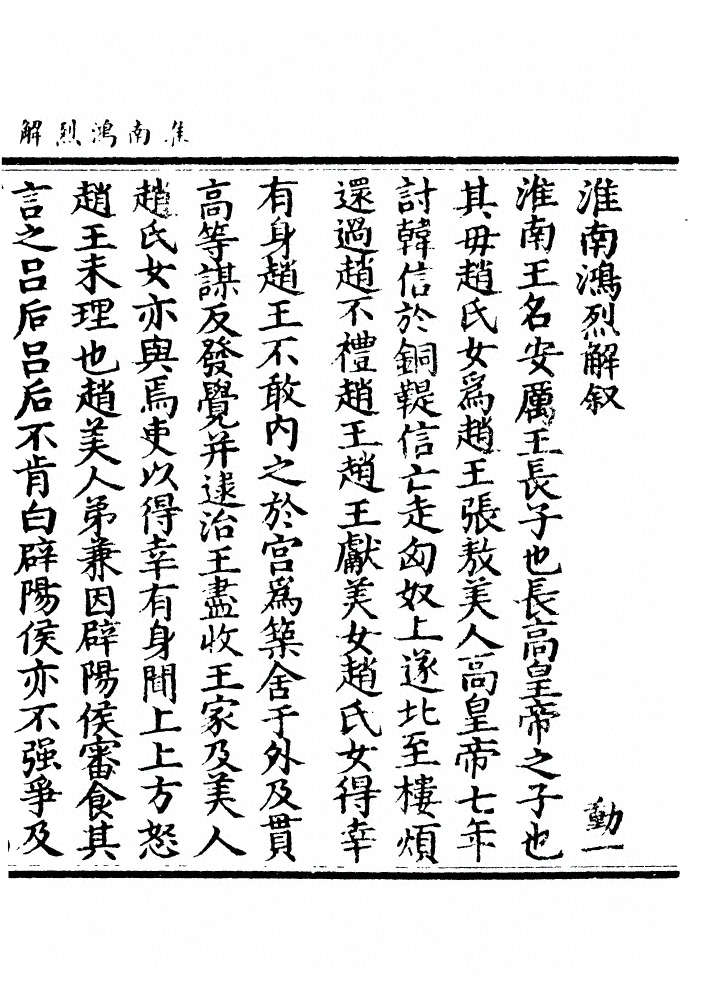 解烈鴻南隹
淮南鴻烈解叙 動一
淮南王名安厲王長子也長高皇帝之子也
其毋趙氏女爲趙王張敖美人高皇帝七年
討韓信於銅鞮信亡走匈奴上遂北至樓煩
還過趙不禮趙王趙王獻美女趙氏女得幸
有身趙王不敢内之於宫爲築舍于外及貫
高等謀反發覺并逮治王盡收王家及美人
趙氏女亦與焉吏以得幸有身聞上上方怒
趙王未理也趙美人弟兼因辟陽侯審食其
言之吕后吕后不肯白辟陽侯亦不强爭及